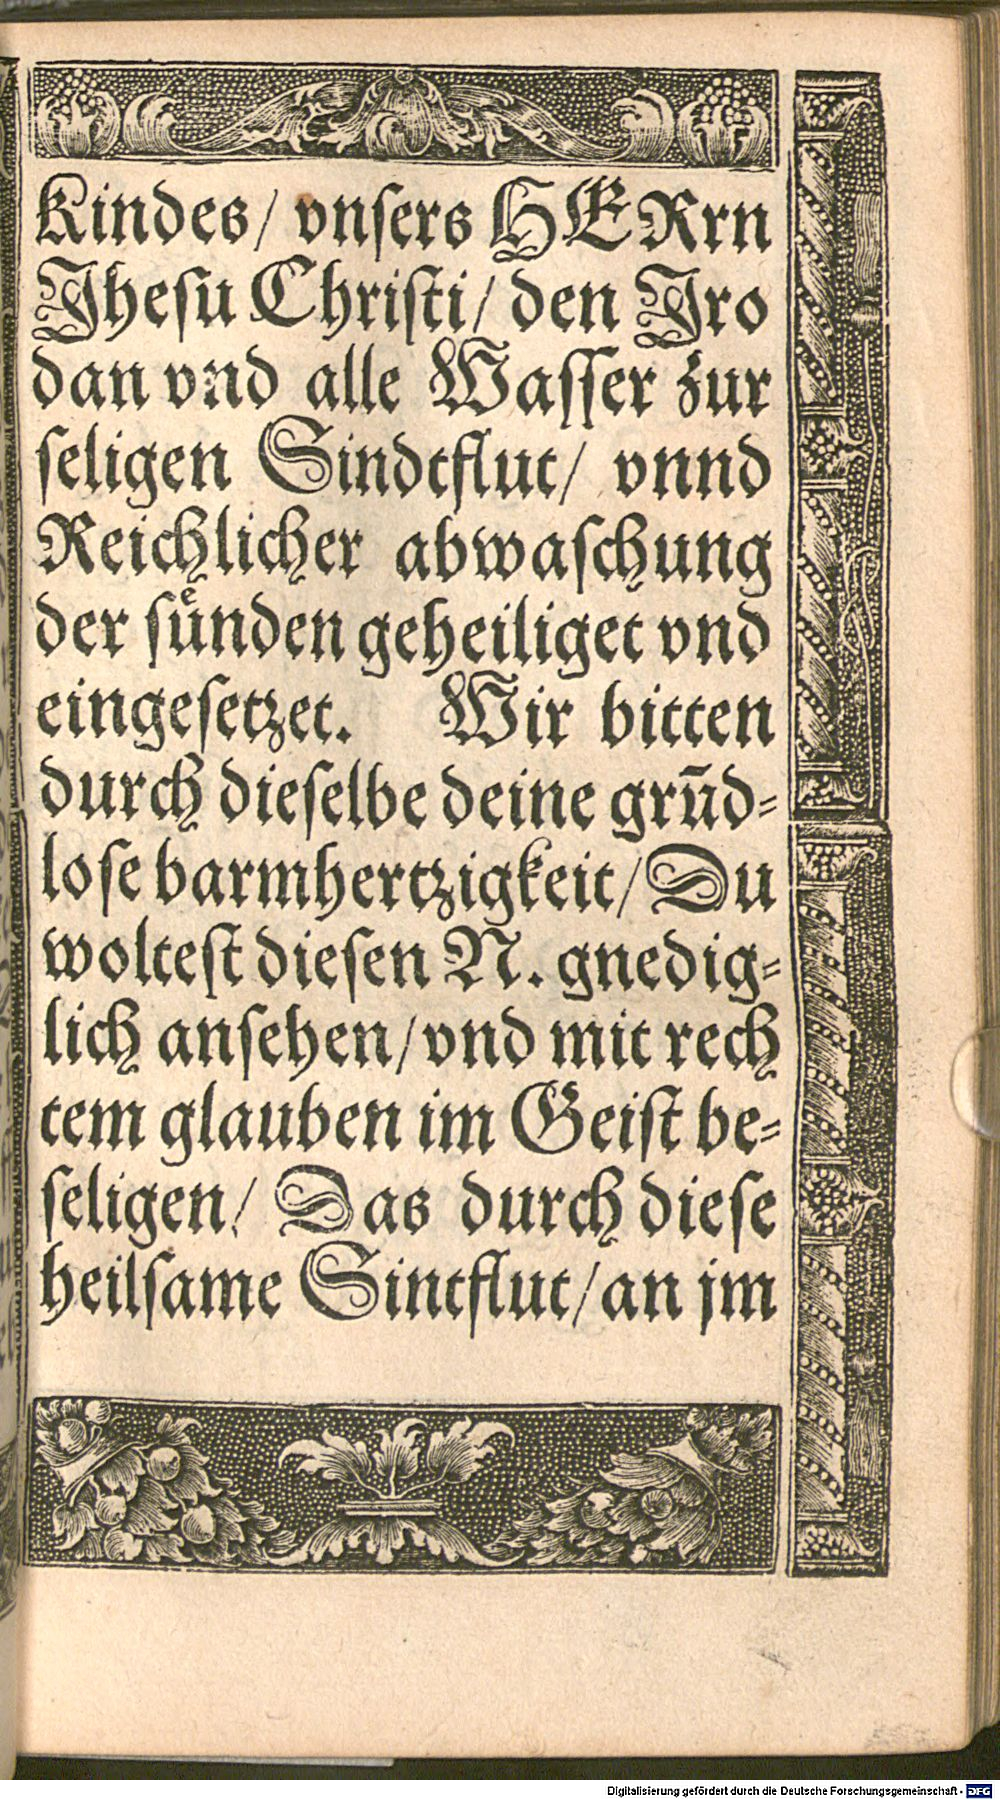 Kindes/ vnsers HERrn
Jhesu Christi/ den Jro
dan vnd alle Wasser zur
seligen Sindtflut/ vnnd
Reichlicher abwaschung
der suͤnden geheiliget vnd
eingesetzet. Wir bitten
durch dieselbe deine grūd-
lose barmhertzigkeit/ Du
woltest diesen N. gnedig-
lich ansehen/ vnd mit rech
tem glauben im Geist be-
seligen/ Das durch diese
heilsame Sintflut/ an jm
Digitalisierung gefördert durch die Deutsche Forschungsgemeinschaft - DFG